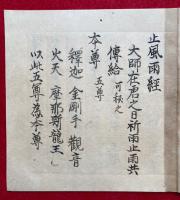 止風雨經
大師在君之日祈雨止雨共
傳給 可秋之
本尊 五尊
釋迦 金剛手 觀音
火天 摩那斯龍王
以此五尊為本尊